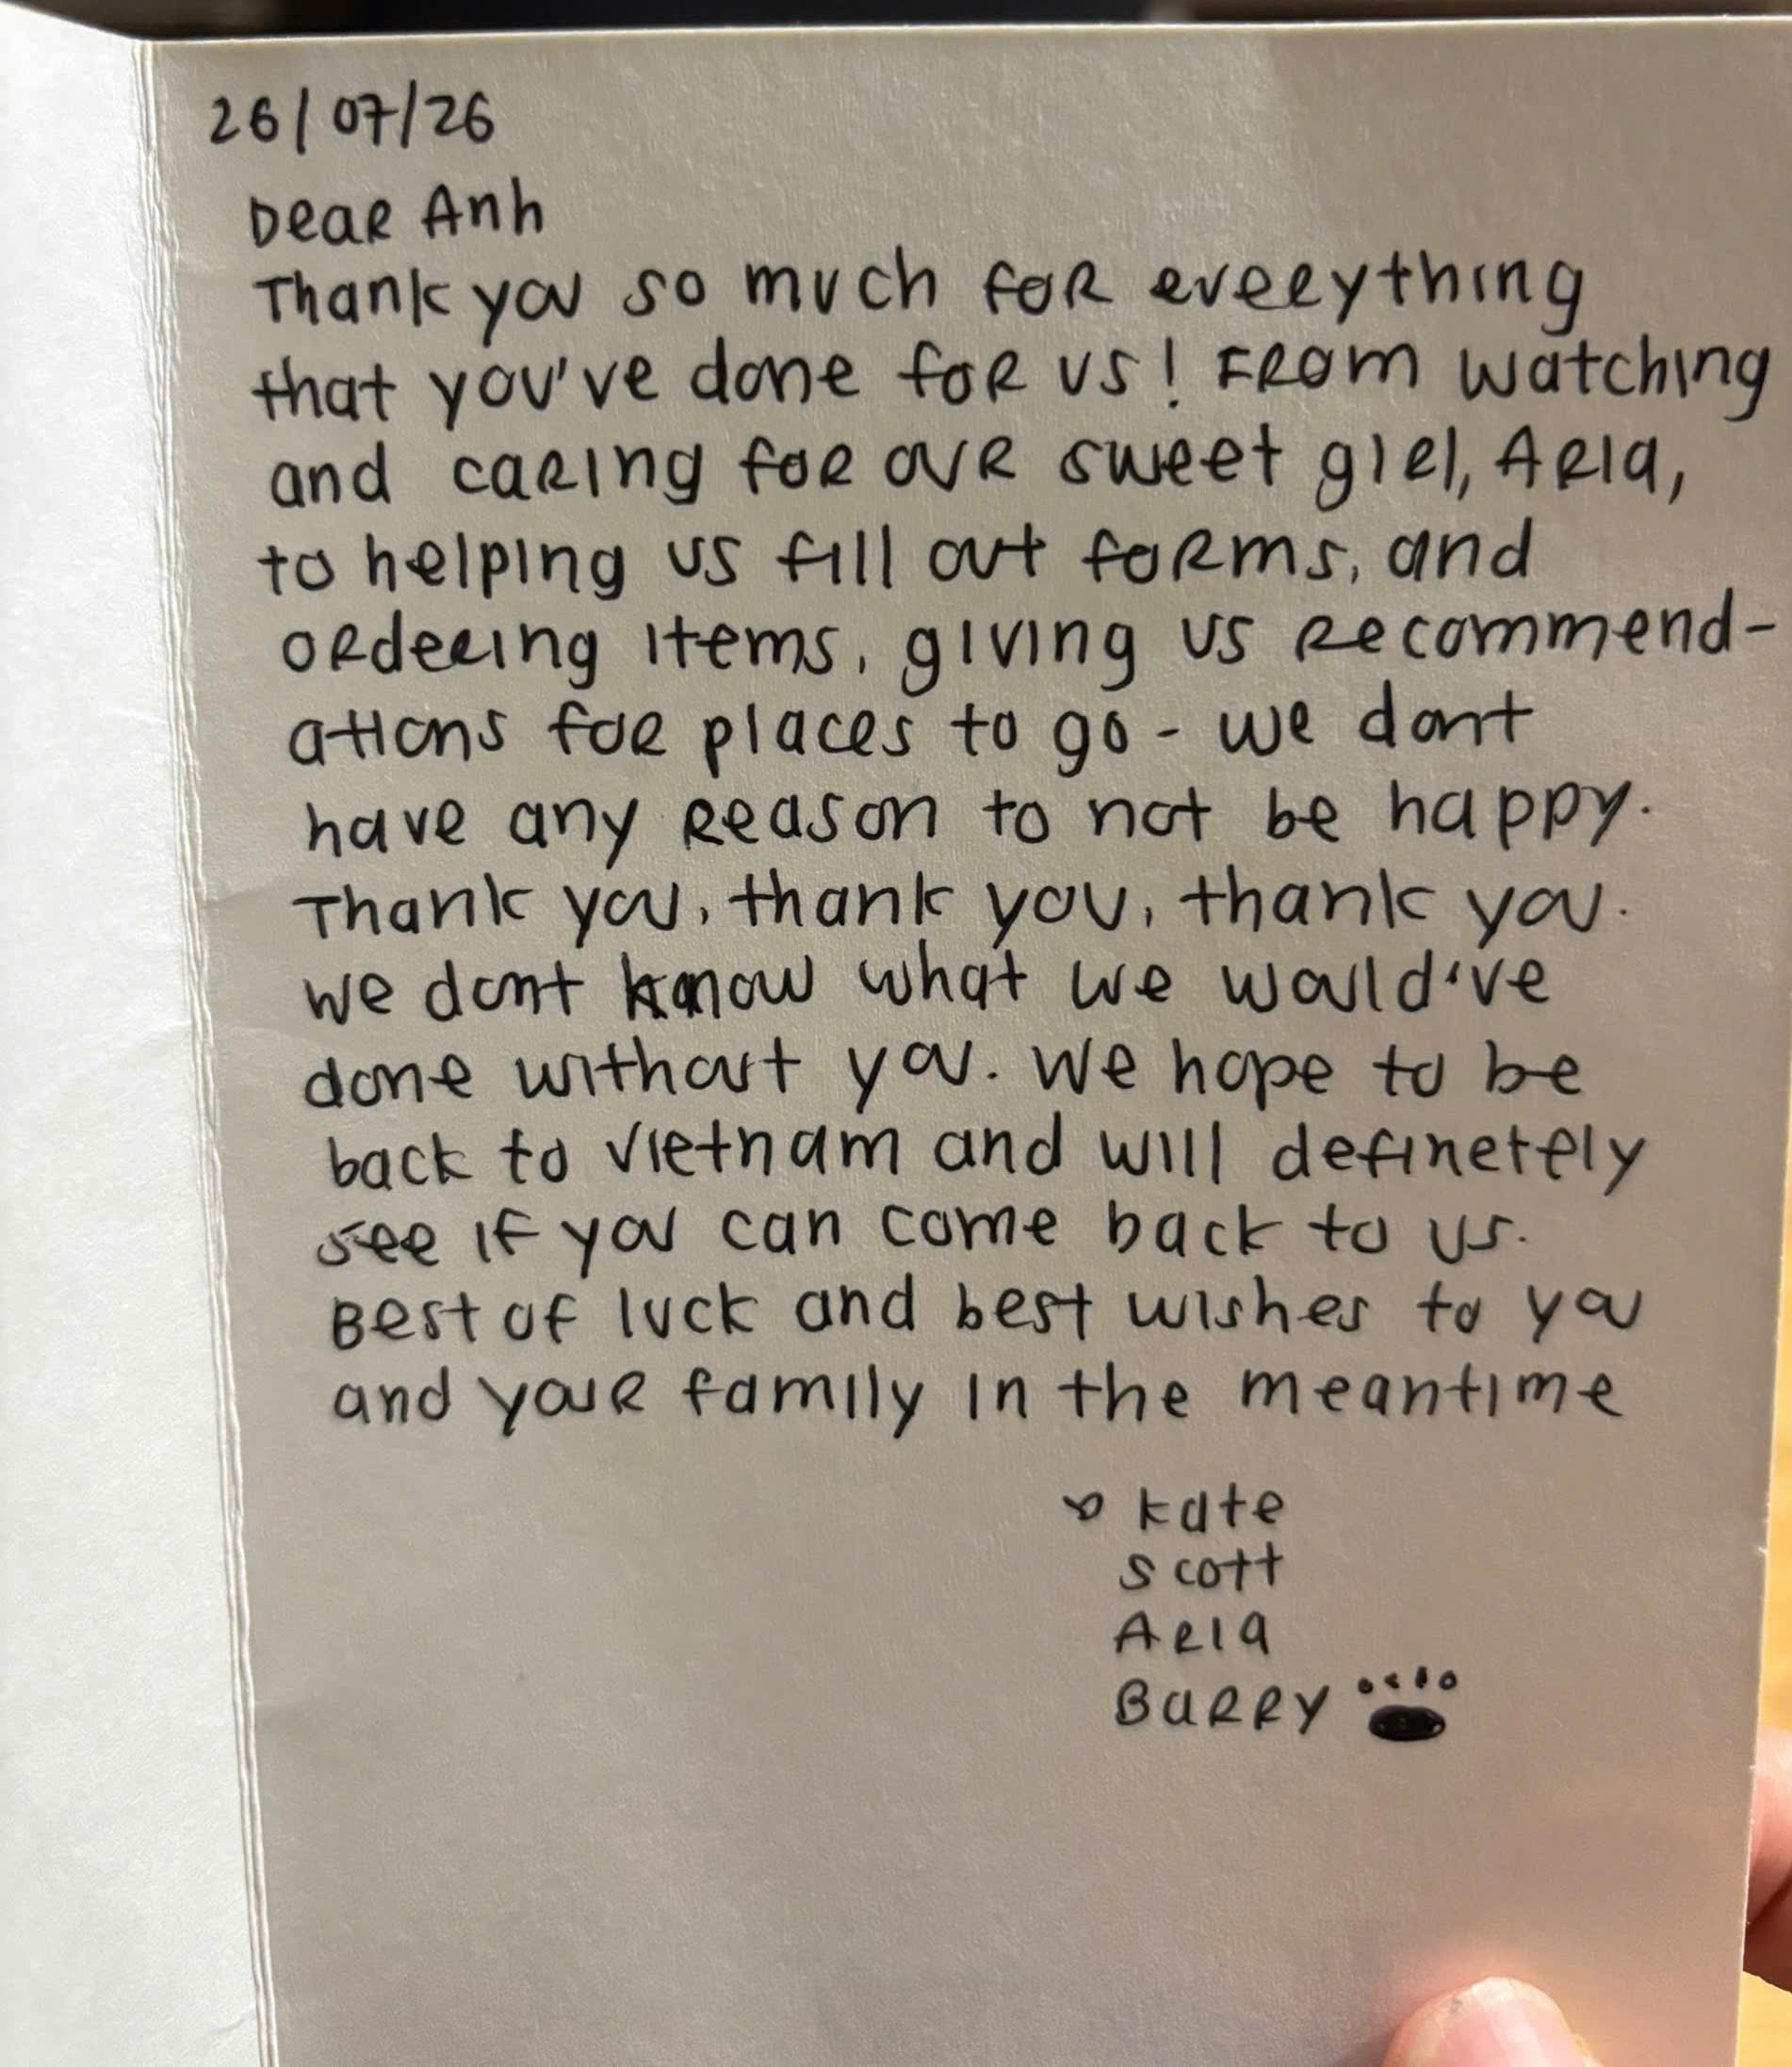 26/07/26
Dear Anh
Thank you so much for everything
that you've done for us! From watching
and caring for our sweet girl, Aria,
to helping us fill out forms, and
ordering items, giving us recommend-
ations for places to go - we dont
have any reason to not be happy.
Thank you, thank you, thank you.
We dont know what we would've
done without you. We hope to be
back to Vietnam and will definetely
see if you can come back to us.
Best of luck and best wishes to you
and your family in the meantime
Kate
Scott
Aria
Barry